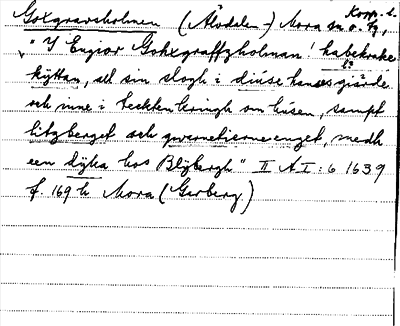 Goxgravsholmen (Älvdalen-) Mora sn o. tg, Korp. l.
"I Engior Gokxgraffzholman! kabekrake
kyttan, all sin slogh i diúse hans giärde
och inne i teckten kringh om húsen, sampt
litzberget och qwarnetiärne enget, medh
een dijka hos Blybergh" II A I: 6 1639
f. 169 h Mora (Garberg.)